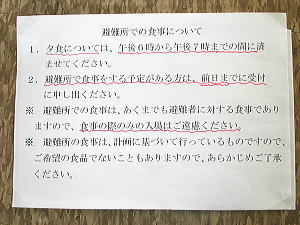 避難所での食事について
1．夕食については、午後6時から午後7時までの間に済
ませてください。
2．避難所で食事をする予定がある方は、前日までに受付
に申し出ください。
※ 避難所での食事は、あくまでも避難者に対する食事であり
ますので、食事の際のみの入場はご遠慮ください。
※ 避難所の食事は、計画に基づいて行っているものですので、
ご希望の食品でないこともありますので、あらかじめご了承
ください。